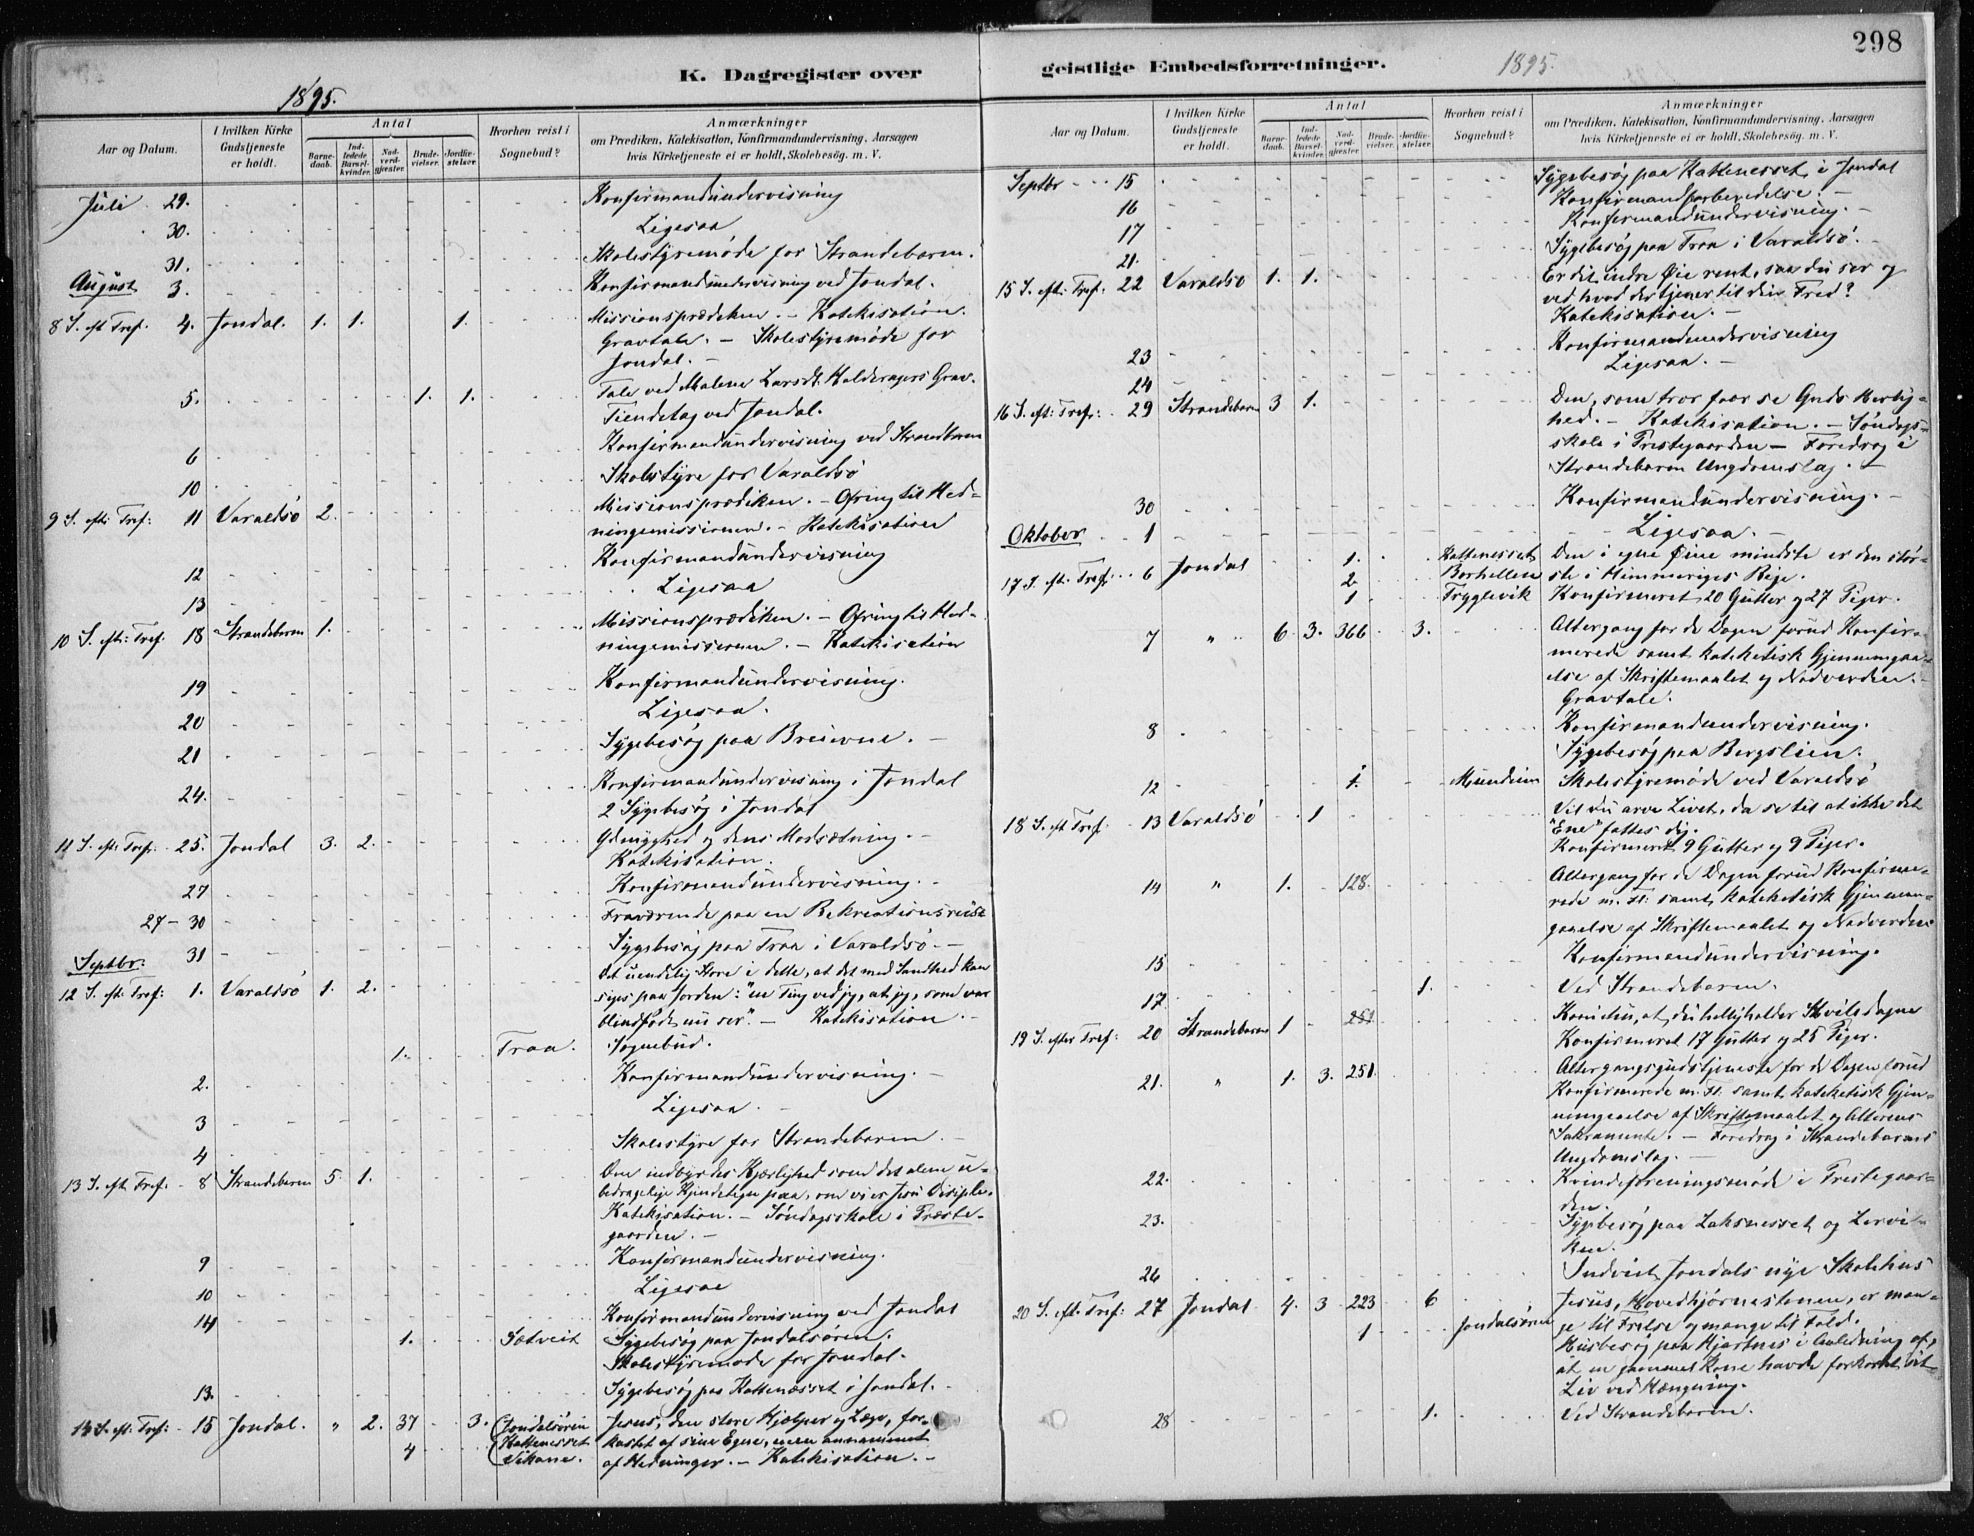 298
K. Dagregister over geistlige Embedsforretninger.
1895.
1895.
Aar og Datum.
I hvilken Kirke Gudstjeneste er holdt.
Antal
Barnedaab.
Indledede Barselkvinder.
Nadverdgjæster.
Brudevielser.
Jordfæstelser.
Hvorhen reist i Sognebud?
Anmærkninger
om Prædiken, Katekisation, Konfirmandundervisning, Aarsagen
hvis Kirketjeneste ei er holdt, Skolebesög, m. V.
Juli 29. Konfirmandundervisning
30. Ligesaa
31. Skolestyremøde for Strandebarm.
August 3. Konfirmandundervisning ved Jondal.
8 S. eft Tref. 4. Jondal. 1. 1. 1. Missionsprædiken. - Katekisation.
Gravtale. - Skolestyremøde for
Jondal. -
5. 1. 1. Tale ved Malene Larsdt. Grav.
Tiendetag ved Jondal.
6 Konfirmandundervisning ved Strandebarm
10 Skolestyre for Varaldsö
9 S. eft: Tref: 11 Varaldsö 2. Missionsprædiken. - Ofring til Hed-
ningemissionen. - Katekisation
12 Konfirmandundervisning
13 Ligesaa
10 S. eft: Tref. 18 Strandebarm 1. Missionsprædiken. - Ofring til Hed-
ningemissionen. - Katekisation
19 Konfirmandundervisning.
20 Ligesaa.
21 Sygebesøg paa Breievne. -
24. Konfirmandundervisning i Jondal
2 Sygebesøg i Jondal
11 S. eft: Tref. 25. Jondal 3. 2. Ydmyghed og dens Modsætning. -
Katekisation.
27 Konfirmandundervisning. -
27 - 30 Fraværende paa en Rekreationsreise
31 Sygebesøg paa Traa i Varaldsö. -
Septbr:
12 S. eft: Tref: 1. Varaldsö 1. 2. Det uendelig Store i dette, at det med Sandhed kan
siges paa Jorden: "en Ting ved jeg, at jeg, som var
blindfødt nu ser". - Katekisation. -
1. Traa. Sognebud.
2. Konfirmandundervisning. -
3 Ligesaa. -
4 Skolestyre for Strandebarm. -
13 S. eft Tref. 8 Strandebarm 5. 1. Den indbyrdes Kjærlighed som det alene u-
bedragelige Kjendetegn paa, om vi er Jesu Disciple.
Katekisation. - Søndagsskole i Præste-
gaarden. -
9 Konfirmandundervisning.
10 Ligesaa
14 Konfirmandundervisning ved Jondal
1. Sætveit Sygebesøg paa Jondalsøren.
Skolestyremøde for Jondal.
13. Sygebesøg paa Kattenæsset i Jondal. -
14 S. eft: Tref: 15 Jondal. " 2. 37 3. Jondalsøren Jesus, den store Hjælper og Læge, for-
Kattenesset kastet af sine Egne, men annammet
4 Vikane. af Hedninger. - Katekisation. -
Septbr 15 Sygebesøg paa Kattenesset i Jondal
16 Konfirmandforberedelse. -
17 Konfirmandundervisning. -
21. Sygebesøg paa Traa i Varaldsö. -
15 S. eft: Tref: 22 Varaldsö 1. 1. Er dit indre Øie rent, saa du ser og
ved hvad der tjener til din Fred?
Katekisation. -
23 Konfirmandundervisning
24 Ligesaa. -
16 S. eft: Tref: 29 Strandebarm 3 1. Den, som tror faar se Guds Herlig-
hed. - Katekisation. - Søndags-
skole i Prestegaarden - Foredrag i
Strandebarm Ungdomslag. -
30 Konfirmandundervisning. -
Oktober 1 Ligesaa. -
17 S. eft. Tref. 6 Jondal 1. Kattenesset Den i egne Øine mindste er den stør-
2. Borhellen ste i Himmeriges Rige.
1 Tryglevik Konfirmeret 20 Gutter og 27 Piger.
7 " 6 3. 366 3. Altergang for de Dagen forud Konfir-
merede samt kateketisk Gjennemgaa-
else af Skriftemaalet og Nadverden. -
Gravtale.
8 Konfirmandundervisning.
Sygebesøg paa Bergslien.
12 1. Mundheim Skolestyremøde ved Varaldsö
18 S. eft Tref. 13 Varaldsö 1 Vil du arve Livet, da se til at ikke det
"Ene" fattes dig.
Konfirmeret 9 Gutter og 9 Piger.
14 " 1. 128. Altergang for de Dagen forud Konfirme-
rede m. Fl. samt kateketisk Gjennem-
gaaelse af Skriftemaalet og Nadverden
15 Konfirmandundervisning.
17. 1. Ved Strandebarm.
19 S. efter Tref: 20 Strandebarm 1 251 Kom ihu, at du helligholder Hviledagen
Konfirmeret 17 Gutter og 25 Piger.
21. " 1. 3. 251. Altergangsgudstjeneste for de Dagen forud
Konfirmerede m. Fl. samt kateketisk Gjen-
nemgaaelse af Skriftemaalet og Alterens
Sakramente. - Foredrag i Strandebarms
Ungdomslag. -
22. Kvindeforeningsmøde i Prestegaar-
den.
23. Sygebesøg paa Laksnesset og Lervi-
ken.
26 Indviet Jondals nye Skolehus
20 S. eft. Tref: 27 Jondal 4. 3 223 6 Jesus, Hovedhjørnestenen, er man-
1 Jondalsøren ge til Frelse og mange til Fald.
Husbesøg paa Hjartnes i Anledning af,
at en gammel Kone havde forkortet sit
Liv ved Hængning.
28 1. Ved Strandebarm.